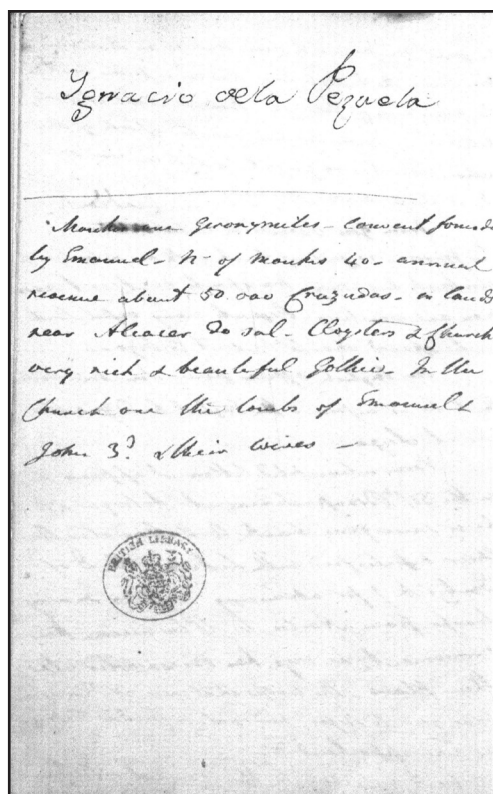 Ignacio de la Pezuela
Monks are Geronymites - convent founde
by Emanuel - No. of monks 40 - annual
revenue about 50.000 Cruzados - in land
near Alcacer do sal - Cloysters & Church
very rich & beautiful Gothic - In the
Church are the tombs of Emanuel &
John 3d. & their wives -
BRITISH LIBRARY